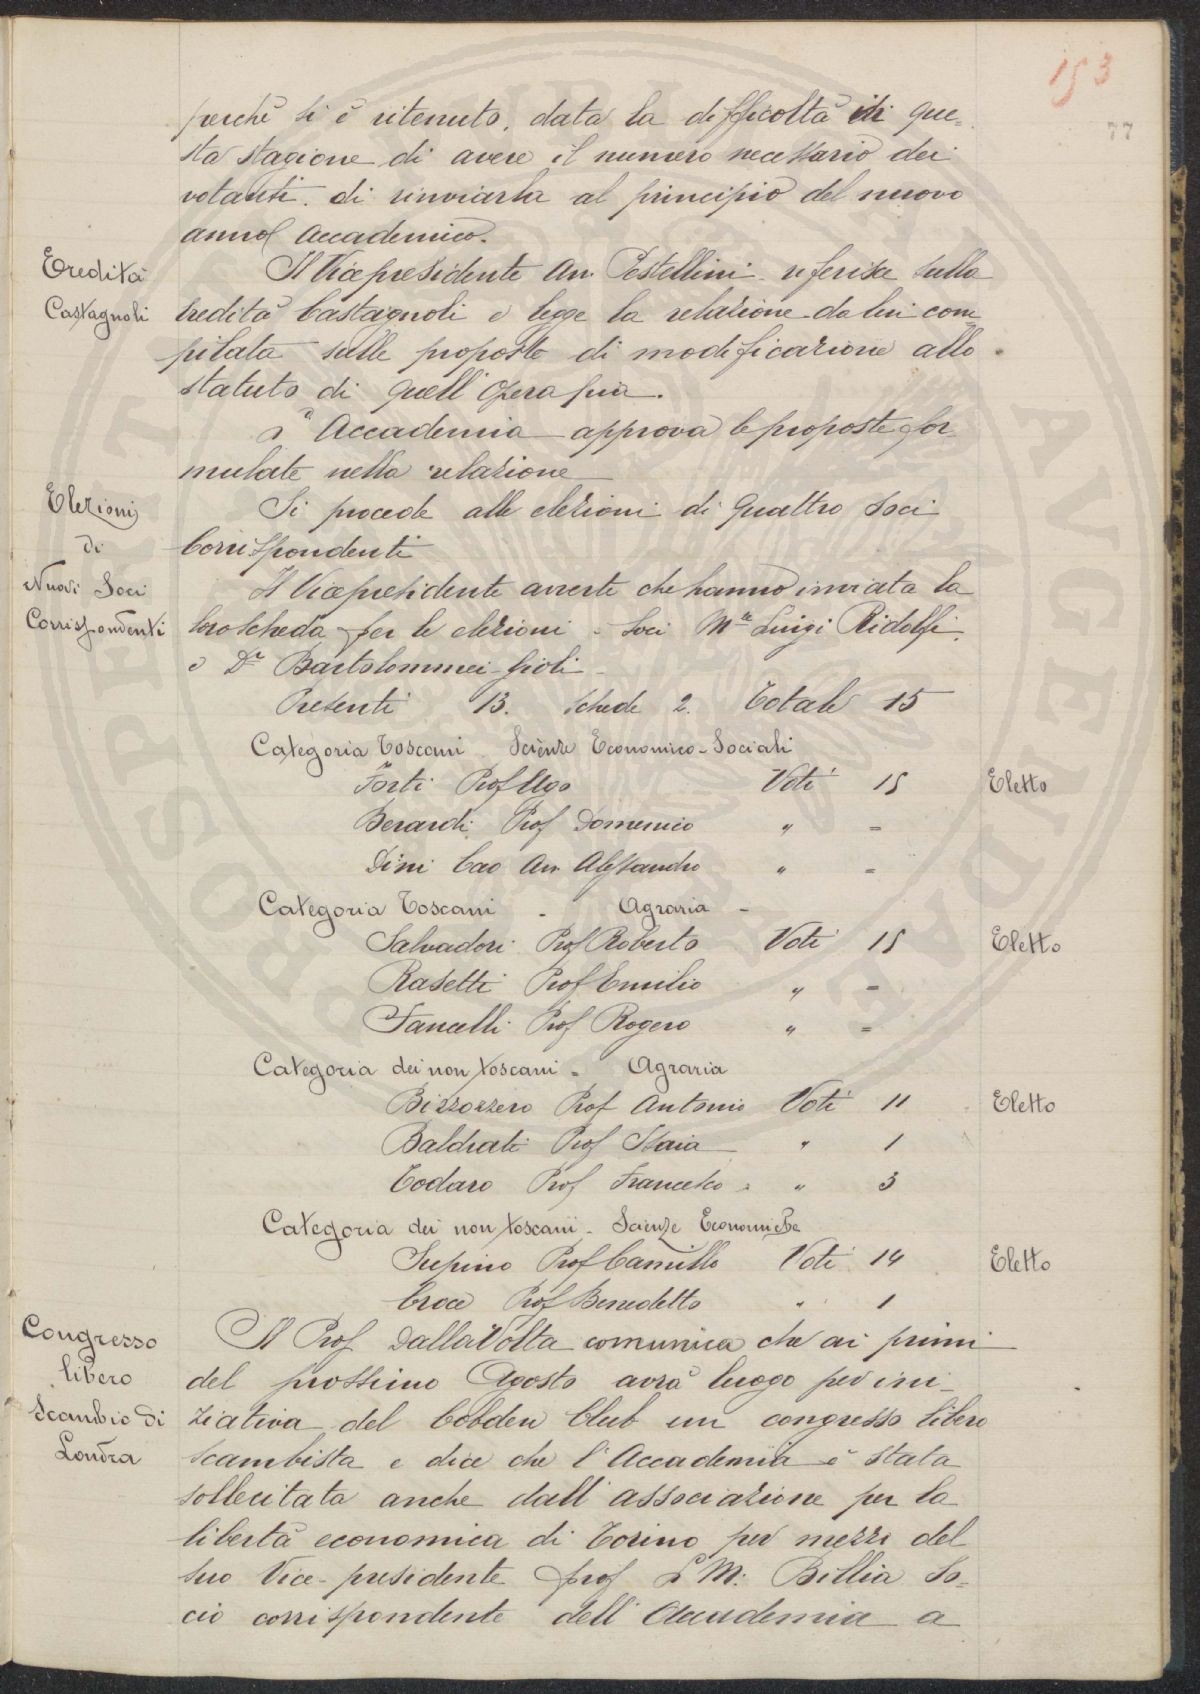 153
77
perchè si è ritenuto, data la difficoltà di que=
sta stagione di avere il numero necessario dei
votanti, di rinviarla al principio del nuovo
anno Accademico.
Eredità
Castagnoli
Il Vicepresidente Avv. Pestellini riferisce sulla
eredità Castagnoli e legge la relazione da lui com
pilata sulle proposte di modificazione allo
statuto di quell'Opera pia.
L'Accademia approva le proposte for
mulate nella relazione
Elezioni
di
Nuovi Soci
Corrispondenti
Si procede alle elezioni di quattro Soci
Corrispondenti
Il Vicepresidente avverte che hanno inviata la
loro scheda per le elezioni i Soci Mse Luigi Ridolfi,
e Dr Bartolommei-Gioli
Presenti 13. Schede 2. Totale 15
Categoria Toscani Scienze Economico-Sociali
Forti Prof Ugo Voti 15 Eletto
Berardi Prof Domenico " =
Dini Cav Avv Alessandro " =
Categoria Toscani - Agraria -
Salvadori Prof Roberto Voti 15 Eletto
Rasetti Prof Emilio " =
Fancelli Prof Rogero " =
Categoria dei non toscani = Agraria
Bizzozzero Prof Antonio Voti 11 Eletto
Baldrati Prof Isaia " 1
Todaro Prof Francesco " 3
Categoria dei non toscani - Scienze Economiche
Supino Prof Camillo Voti 14 Eletto
Croce Prof Benedetto " 1
Congresso
libero
Scambio di
Londra
Il Prof Dalla Volta comunica che ai primi
del prossimo Agosto avrà luogo per ini=
ziativa del Cobden Club un congresso libero
scambista e dice che l'Accademia è stata
sollecitata anche dall'associazione per la
libertà economica di Torino per mezzo del
suo Vice-presidente prof L M. Billia So=
cio corrispondente dell'Accademia a
PROSPERITATI PUBLICAE AUGENDAE